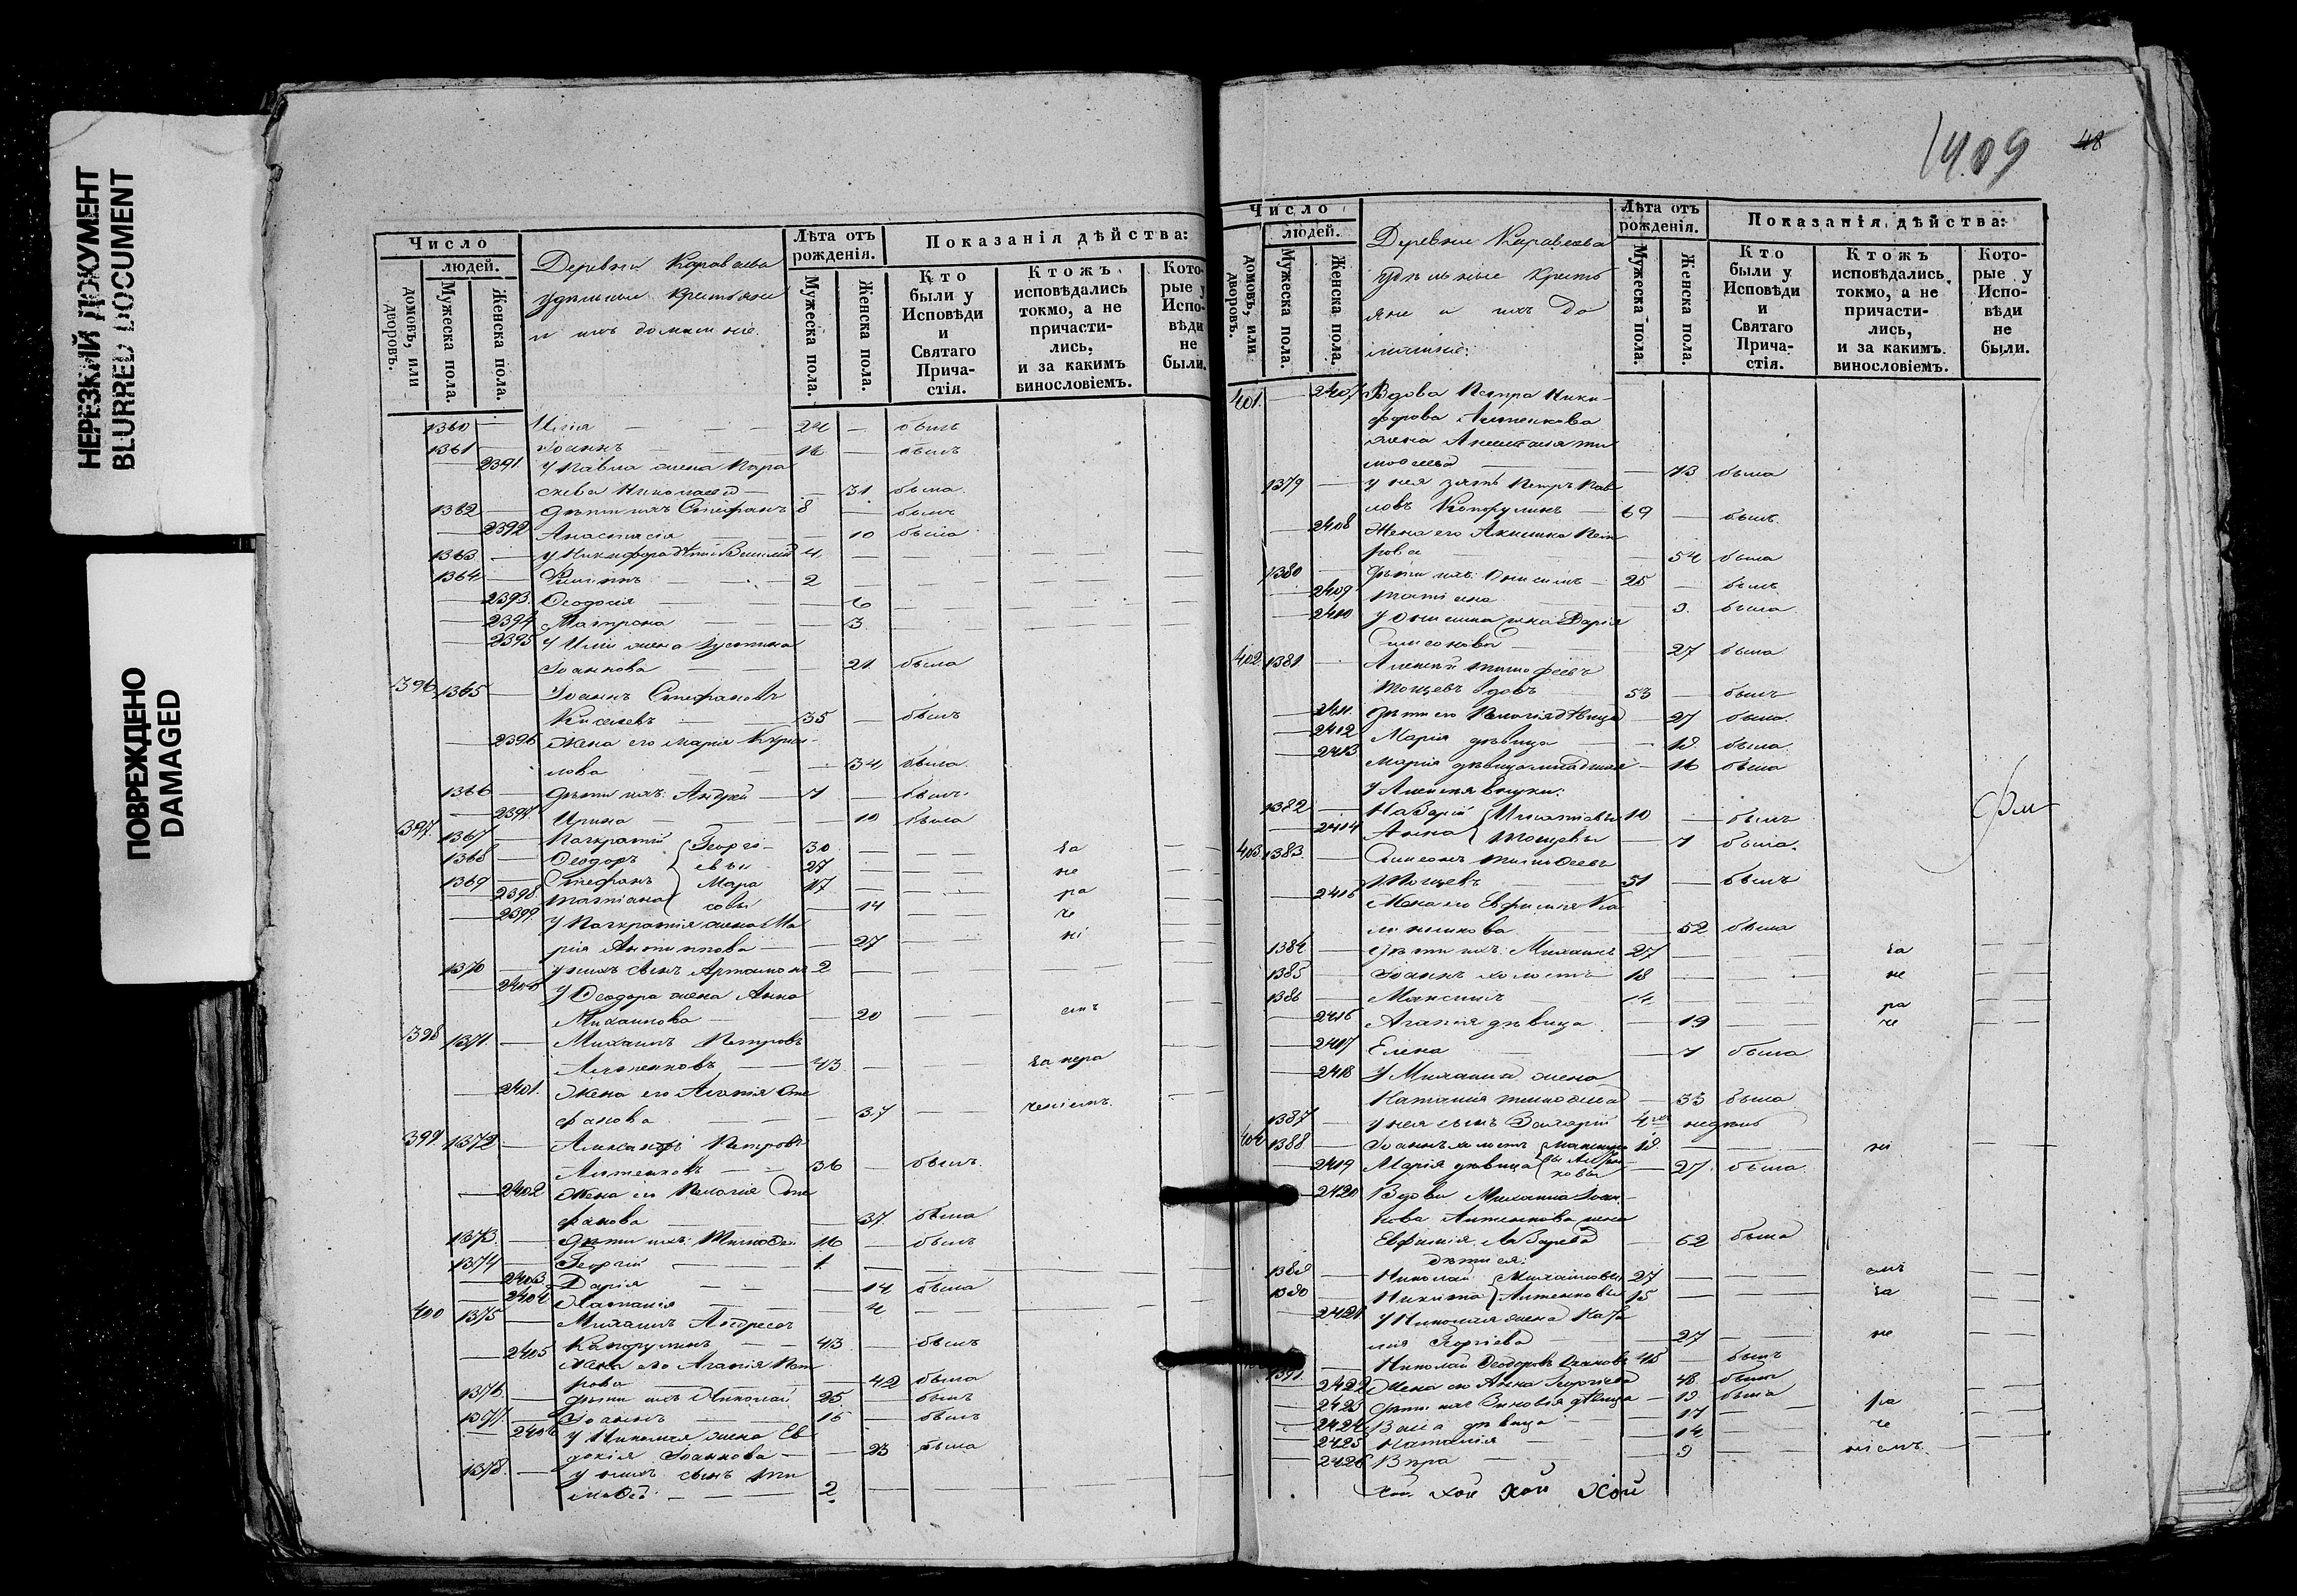 НЕРЕЗКИЙ ДОКУМЕНТ
BLURRED DOCUMENT
ПОВРЕЖДЕНО
DAMAGED
Число
людей.
домовъ, или дворовъ.
Мужеска пола.
Женска пола.
Деревни Караваева
удѣльные крестьяне
и ихъ домашние.
Лѣта отъ рожденія.
Мужеска пола.
Женска пола.
Показанія дѣйства:
Кто были у Исповѣди и Святаго Прича-стія.
Ктожъ исповѣдались токмо, а не причасти-лись, и за какимъ винословіемъ.
Кото-рые у Испо-вѣди не были.
1360 — Илія — 24 — былъ
1361 — Іоаннъ — 16 — былъ
— 2391 У Павла жена Пара
скева Николаева — 31 была
1362 — дѣти ихъ Стефанъ 8 — былъ
— 2392 Анастасія — 10 была
1363 — У Никифора дѣти Василій 4 —
1364 — Филиппъ 2
— 2393 Ѳеодосія — 6
— 2394 Матрона — 3
— 2395 У Иліи жена Іустина
Іоаннова — 21 была
396 1365 — Іоаннъ Стефановъ
Киселевъ 35 — былъ
— 2396 Жена его Марія Кирил-
лова — 34 была
1366 — дѣти ихъ: Андрей 7 — былъ
— 2397 Ирина — 10 была
397 1367 — Панкратій Георгі- 30 — за
1368 — Ѳеодоръ евы 27 — не
1369 — Стефанъ 17 — ра
— 2398 Татіана — 14 — че
— 2399 У Панкратія жена Ма
рія Антипова — 27 — ні
1370 — у нихъ сынъ Артамонъ 2
— 2400 У Ѳеодора жена Анна
Михаилова — 20 — емъ
398 1371 — Михаилъ Петровъ
43 — за нера
— 2401 Жена его Агапія Сте
фанова — 37 — ченіемъ.
399 1372 — Александръ Петровъ
36 — былъ
— 2402 Жена его Пелагія Сте
фанова — 37 была
1373 — дѣти ихъ: Тимоѳей 16 — былъ
1374 — Георгій 1
— 2403 Дарія — 14 была
— 2404 Наталія — 4
400 1375 — Михаилъ Андреевъ
43 — былъ
— 2405 Жена его Агапія Пет
рова — 42 была
1376 — дѣти ихъ Николай 25 — былъ
1377 — Іоаннъ 16 — былъ
— 2406 У Николая жена Ев
докія Іоаннова — 23 была
1378 — у нихъ сынъ Ти
моѳей 2
1409
48
Число
людей.
домовъ, или дворовъ.
Мужеска пола.
Женска пола.
Деревни Караваева
удѣльные кресть
яне и ихъ до
машніе:
Лѣта отъ рожденія.
Мужеска пола.
Женска пола.
Показанія дѣйства:
Кто были у Исповѣди и Святаго Прича-стія.
Ктожъ исповѣдались токмо, а не причасти-лись, и за какимъ винословіемъ.
Кото-рые у Испо-вѣди не были.
401 — 2407 Вдова Петра Ники-
форова
жена Ти
моѳеева — 73 была
1379 — у нея зять Петръ Пав
ловъ 69 — былъ
— 2408 Жена его Акилина Пет
рова — 54 была
1380 — дѣти ихъ: Онисимъ 25 — былъ
— 2409 Татіана — 9 была
— 2410 У Онисима жена Дарія
Симеонова — 27 была
402 1381 — Алексій Тимоѳеевъ
вдовъ 53 — былъ
— 2411 дѣти его Пелагія дѣвица — 27 была
— 2412 Марія дѣвица — 18 была
— 2413 Марія дѣвица младшая — 16 была
У Алексія внуки:
1382 — Назарій Игнатіевы 10 — былъ
— 2414 Анна — 7 была
403 1383 — Симеонъ Тимоѳеевъ
51 — былъ
— 2415 Жена его Евфимія Ка
линикова — 52 была
1384 — дѣти ихъ: Михаилъ 27 — за
1385 — Іоаннъ холостъ 18 — не
1386 — Максимъ 14 — ра
— 2416 Агапія дѣвица — 19 — че
— 2417 Елена — 7 была
— 2418 У Михаила жена
Наталія Тимоѳеева — 33 была
1387 — у нея сынъ Захарій 4хъ недѣль
404 1388 — Іоаннъ холостъ 18 — ні
— 2419 Марія дѣвица — 27 была
— 2420 Вдова Михаила Іоан-
нова жена
Евфимія Лазарева — 62 была
дѣти ея:
1389 — Николай Михаиловы 27 — емъ
1390 — Никита 15 — за
— 2421 У Николая жена Ната
лія Георгіева — 27 — не
1391 — Николай Ѳеодоровъ 45 — былъ
— 2422 Жена его Анна Георгіева 48 была
— 2423 дѣти ихъ Зиновія дѣвица — 19 была
— 2424 дѣвица — 17 — ра
— 2425 Наталія — 14 — че
— 2426 Вѣра — 9 — ніемъ